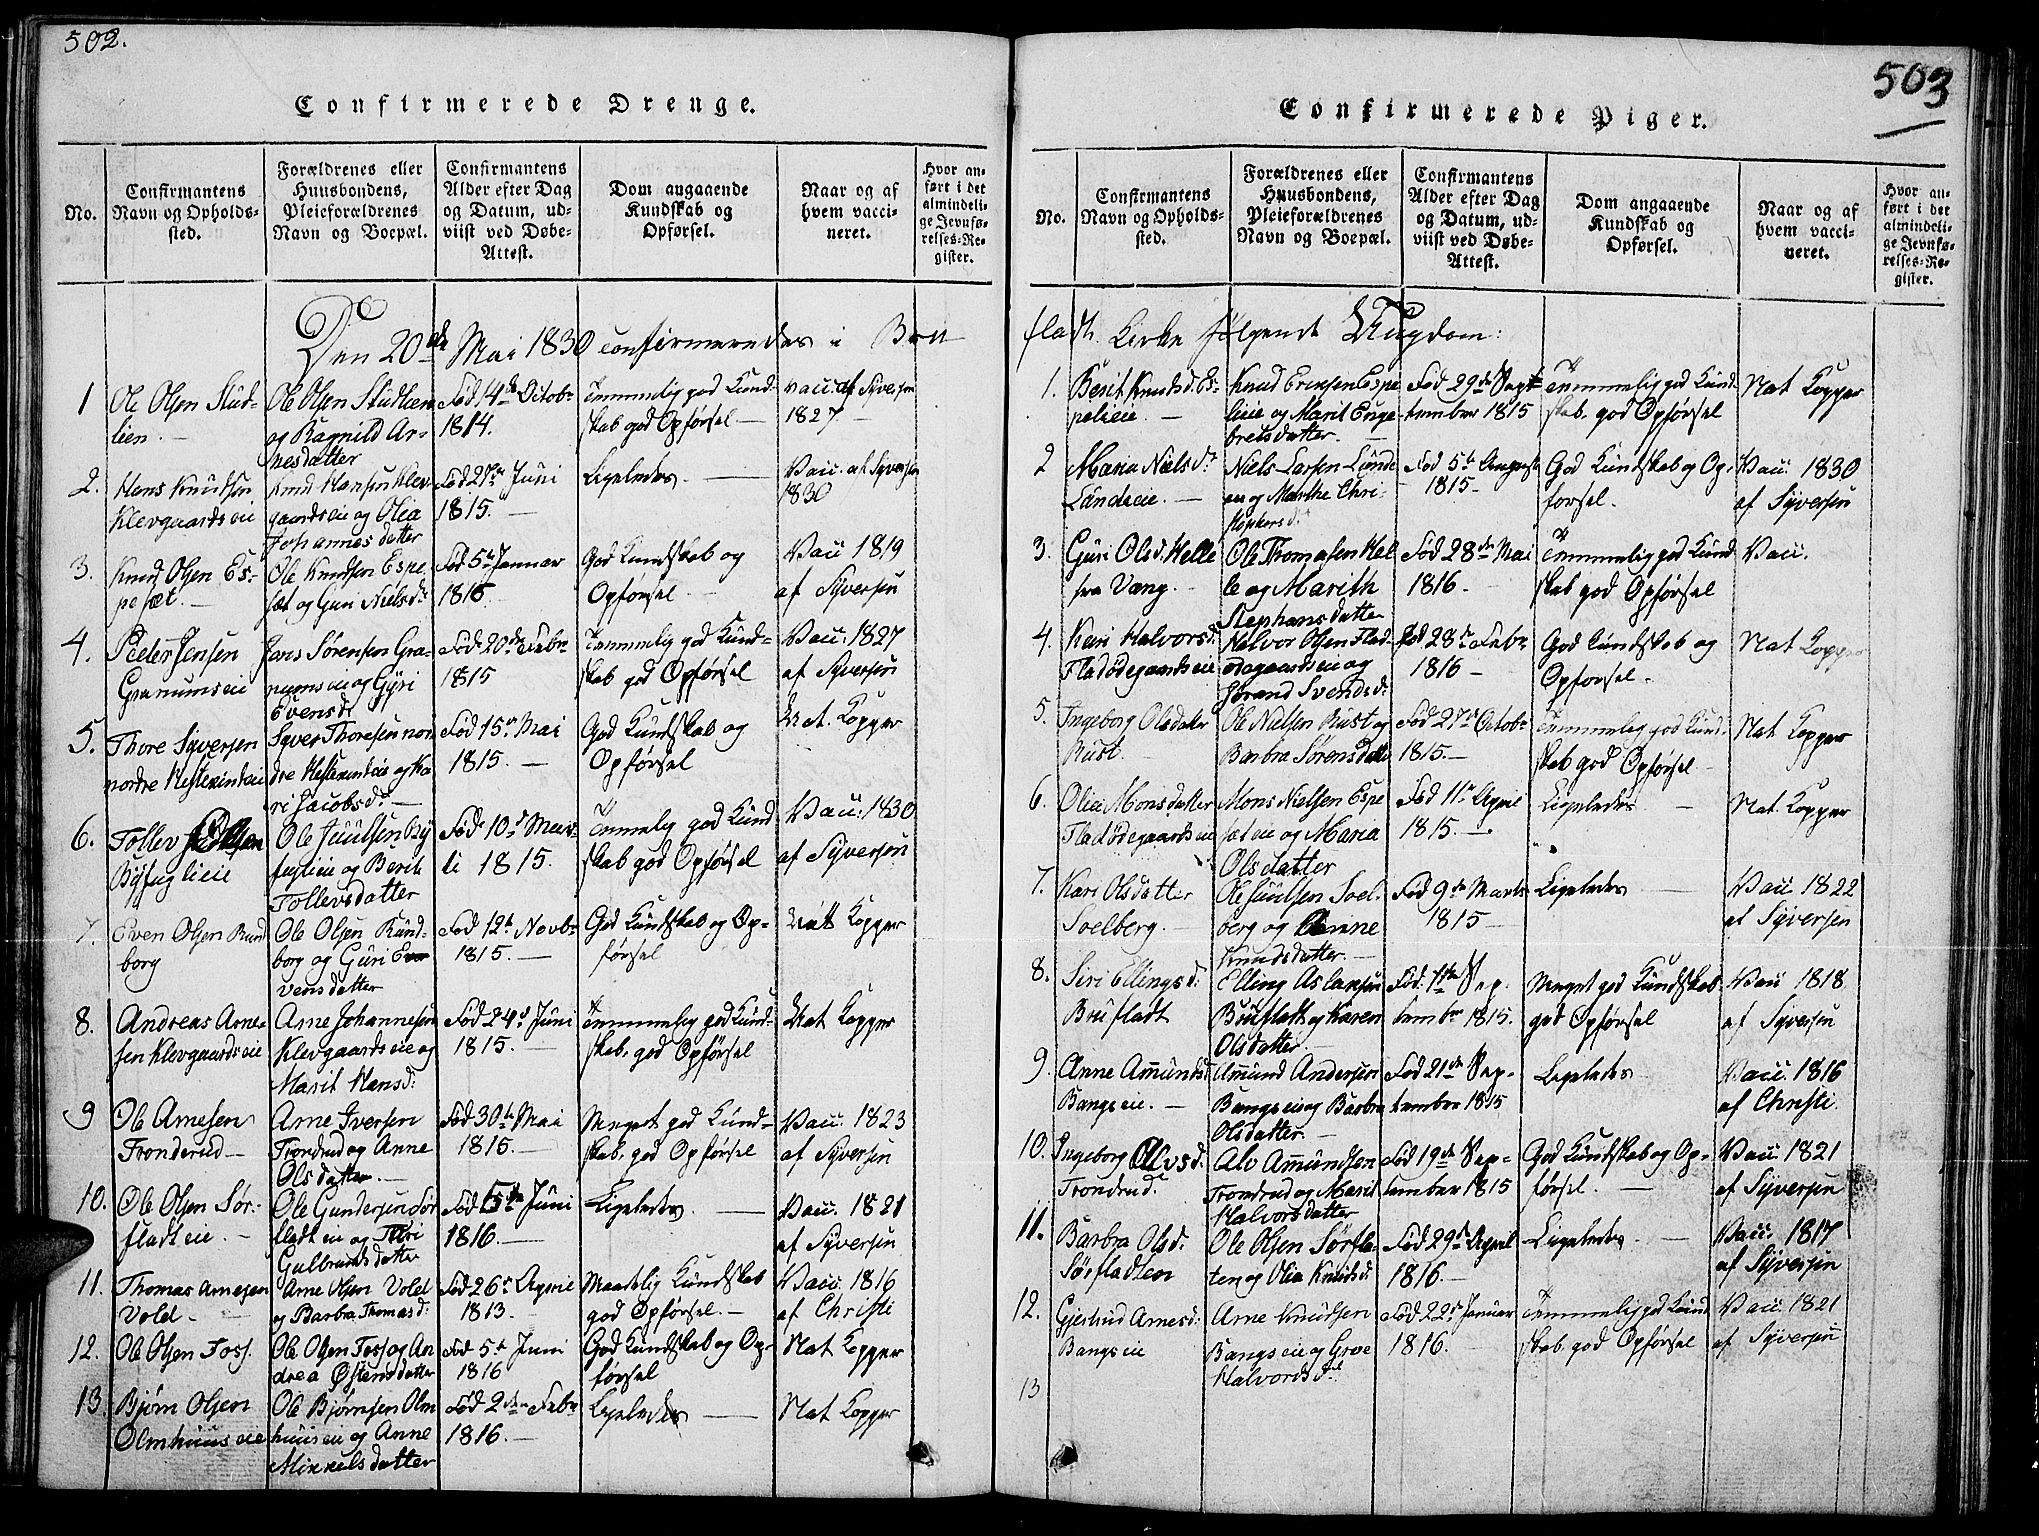 502.
Confirmerede Drenge.
No.
Confirmantens
Navn og Opholds-
sted.
Forældrenes eller
Huusbondens,
Pleieforældrenes
Navn og Boepæl.
Confirmantens
Alder efter Dag
og Datum, ud-
viist ved Døbe-
Attest.
Dom angaaende
Kundskab og
Opførsel.
Naar og af
hvem vacci-
neret.
Hvor an-
ført i det
almindeli-
ge Jevnfø-
relses-Re-
gister.
Den 20de Mai 1830 confirmeredes i Bru
1
Ole Olsen Stud-
lien. -
Ole Olsen Studlien
og Ragnild Ar-
nesdatter
Fød 14de Octobr
1814.
Temmelig god Kund-
skab god Opførsel -
vacc: af Syversen
1827 -
2.
Hans Knudsen
Klevgaardseie
Knud Hansen Klev-
gaardseie og Olia
Johannesdatter
Fød 27de Juni
1815. -
Ligeledes. -
Vacc. af Syversen
1830
3.
Knud Olsen Es-
pesæt. -
Ole Knudsen Espe-
sæt og Guri Nielsd:
Fød 5te Januar
1816
God Kundskab og
Opførsel -
Vacc 1819
af Syversen
4.
Peder Jensen
Granumseie
Jens Sørensen Gra-
numseie og Gyri
Evensd:
Fød 20de Febr
1815
Temmelig god Kund-
skab god Opførsel
Vacc: 1827
af Syversen
5.
Thore Syversen
nordre Hestekindeie
Syver Thoresen nor-
dre Hestekindeie og Ka-
ri Jacobsd: -
Fød 15de Mai
1815. -
God Kundskab og
Opførsel
Nat. Kopper
6.
Tollev Olsen
Byfuglieie
Ole Juulsen By
fuglieie og Berit
Tollevsdatter
Fød 10d Mar-
ti 1815.
Temmelig god Kund
skab god Opførsel
Vacc: 1830
af Syversen
7.
Even Olsen Rund
borg
Ole Olsen Rund-
borg og Guri E
vensdatter
Fød 12te Novbr
1815. -
God Kundskab og Op-
førsel
Natt Kopper
8.
Andreas Arne-
sen Klevgaardseie
Arne Johannesen
Klevgaardseie og
Marit Hansd:
Fød 24d Juni
1815. -
Temmelig god Kund-
skab, god Opførsel
Nat Kopper
9
Ole Arnesen
Tronderud -
Arne Iversen
Trondrud og Anne
Olsdatter. -
Fød 30te Mai
1815. -
Meget god Kund-
skab, god Opførsel
Vacc. 1823
af Syversen
10.
Ole Olsen Sør-
fladteie. -
Ole Gundersen Sør
fladteie og Thiri
Gulbrandsdatter
Fød 5te Juni
1816. -
Ligeledes -
Vacc: 1821
af Syversen
11.
Thomas Arnesen
Vold. -
Arne Olsen Vold
og Barbra Thomasd:
Fød 26de April
1813. -
Maadelig Kundskab
god Opførsel. -
Vacc: 1816
af Christi
12.
Ole Olsen Foss.
Ole Olsen Foss og An
drea Østensdatter
Fød 5te Juni
1816
God Kundskab og Op-
førsel
Nat Kopper
13.
Bjørn Olsen
Olmhuuseie
Ole Bjørnsen Olm
huuseie og Anne
Mikkelsdatter
Fød 2den Febr
1816. -
Ligeledes -
Nat Kopper
503
Confirmerede Piger.
No.
Confirmantens
Navn og Opholds-
sted.
Forældrenes eller
Huusbondens,
Pleieforældrenes
Navn og Boepæl.
Confirmantens
Alder efter Dag
og Datum, ud-
viist ved Døbe-
Attest.
Dom angaaende
Kundskab og
Opførsel.
Naar og af
hvem vacci-
neret.
Hvor an-
ført i det
almindeli-
ge Jevnfø-
relses-Re-
gister.
fladt Kirke følgende Ungdom:
1.
Berit Knudsd. Es-
pelieie -
Knud Ericsen Espe
lieie og Marit Enge
bretsdatter. -
Fød 29de Sep-
tember 1815
Temmelig god Kund-
skab, god Opførsel
Nat Kopper
2
Maria Nielsd.
Lundeeie. -
Niels Larsen Lunde
eie og Marthe Chri-
stophersd:
Fød 5te August
1815. -
God Kundskab og Op-
førsel. -
Vacc: 1830
af Syversen
3.
Guri Olsd. Helle
fra Vang. -
Ole Thomasen Hel
le og Marith
Stephansdatter
Fød 28de Mai
1816. -
Temmelig god Kund
skab god Opførsel
Vacc.
4.
Kari Halvorsd.
Fladødegaardseie
Halvor Olsen Flad-
ødegaardseie og
Jørand Svendsd:
Fød 28de Febr
1816 -
God Kundskab og
Opførsel. -
Nat Kopper
5.
Ingeborg Olsdater
Rust. -
Ole Nielsen Rust og
Barbra Sørensdatter
Fød 27de Octobr
1815. -
Temmelig god Kund-
skab god Opførsel -
Nat Kopper
6.
Olia Monsdatter
Fladødegaardseie
Mons Nielsen Espe
sæteie og Maria
Olsdatter
Fød 11te April
1815. -
Ligeledes -
Nat. Kopper
7.
Kari Olsdatter
Soelberg. -
Ole Juulsen Soel-
berg og Anne
Knudsdatter. -
Fød 9de Marts
1815 -
Ligeledes -
Vacc 1822
af Syversen
8.
Siri Ellingsd:
Brufladt
Elling Aslaksen
Brufladt og Karen
Olsdatter. -
Fød 1ste Sep-
tembr 1815.
Meget god Kundskab
god Opførsel
Vacc 1818
af Syversen
9.
Anne Amundsd
Bangseie. -
Amund Andersen
Bangseie og Barbra
Olsdatter. -
Fød 21de Sep-
tember 1815
Ligeledes
Vacc. 1816
af Christi.
10.
Ingeborg Alvsd.
Trondrud.
Alv Amundsen
Trondrud og Marit
Halvorsdatter
Fød 19de Sep-
tember 1815
God Kundskab og Op-
førsel. -
Vacc: 1821
af Syversen
11.
Barbra Olsd.
Sørfladten
Ole Olsen Sørfla-
ten og Olia Knudsd:
Fød 29de April
1816. -
Ligeledes. -
Vacc: 1817
af Syversen
12.
Gjertrud Arnesd:
Bangseie
Arne Knudsen
Bangseie og Groe
Halvordsd.
Fød 22de Januar
1816. -
Temmelig god Kund
skab, god Opførsel
Vacc: 1821
af Syversen
13